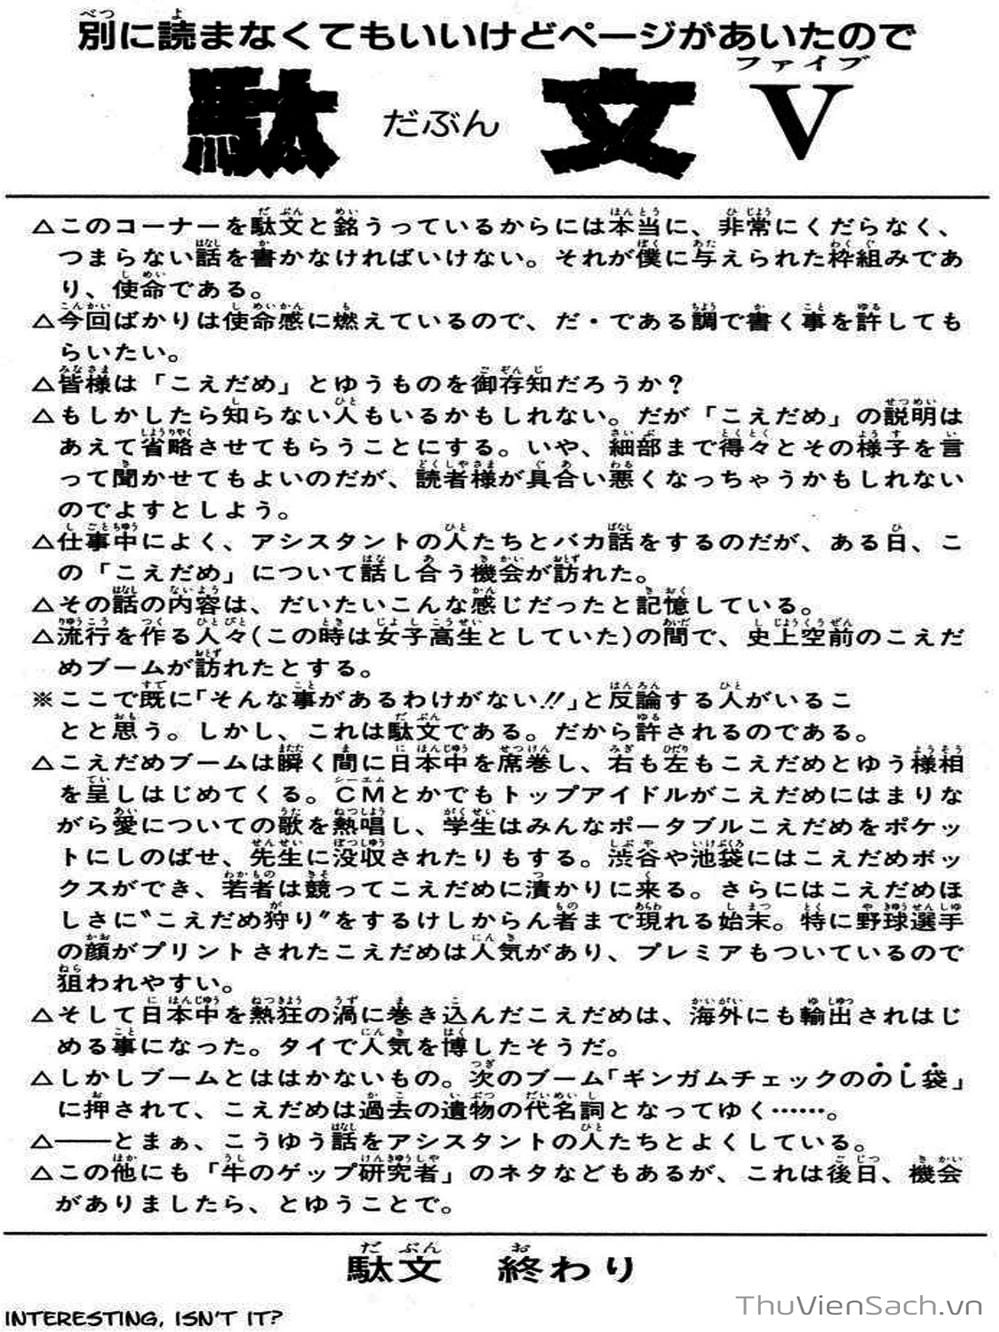 別に読まなくてもいいけどページがあいたので
駄文 だぶん V
△このコーナーを駄文と銘うっているからには本当に、非常にくだらなく、
つまらない話を書かなければいけない。それが僕に与えられた枠組みであ
り、使命である。
△今回ばかりは使命感に燃えているので、だ・である調で書く事を許しても
らいたい。
△皆様は「こえだめ」とゆうものを御存知だろうか?
△もしかしたら知らない人もいるかもしれない。だが「こえだめ」の説明は
あえて省略させてもらうことにする。いや、細部まで得々とその様子を言
って聞かせてもよいのだが、読者様が具合い悪くなっちゃうかもしれない
のでよすとしよう。
△仕事中によく、アシスタントの人たちとバカ話をするのだが、ある日、こ
の「こえだめ」について話し合う機会が訪れた。
△その話の内容は、だいたいこんな感じだったと記憶している。
△流行を作る人々(この時は女子高生としていた)の間で、史上空前のこえだ
めブームが訪れたとする。
※ここで既に「そんな事があるわけがない!!」と反論する人がいるこ
とと思う。しかし、これは駄文である。だから許されるのである。
△こえだめブームは瞬く間に日本中を席巻し、右も左もこえだめとゆう様相
を呈しはじめてくる。CMとかでもトップアイドルがこえだめにはまりな
がら愛についての歌を熱唱し、学生はみんなポータブルこえだめをポケッ
トにしのばせ、先生に没収されたりもする。渋谷や池袋にはこえだめボッ
クスができ、若者は競ってこえだめに漬かりに来る。さらにはこえだめほ
しさに〝こえだめ狩り〟をするけしからん者まで現れる始末。特に野球選手
の顔がプリントされたこえだめは人気があり、プレミアもついているので
狙われやすい。
△そして日本中を熱狂の渦に巻き込んだこえだめは、海外にも輸出されはじ
める事になった。タイで人気を博したそうだ。
△しかしブームとははかないもの。次のブーム「ギンガムチェックののし袋」
に押されて、こえだめは過去の遺物の代名詞となってゆく……。
△――とまぁ、こうゆう話をアシスタントの人たちとよくしている。
△この他にも「牛のゲップ研究者」のネタなどもあるが、これは後日、機会
がありましたら、とゆうことで。
駄文 終わり
INTERESTING, ISN'T IT?
ThuVienSach.vn